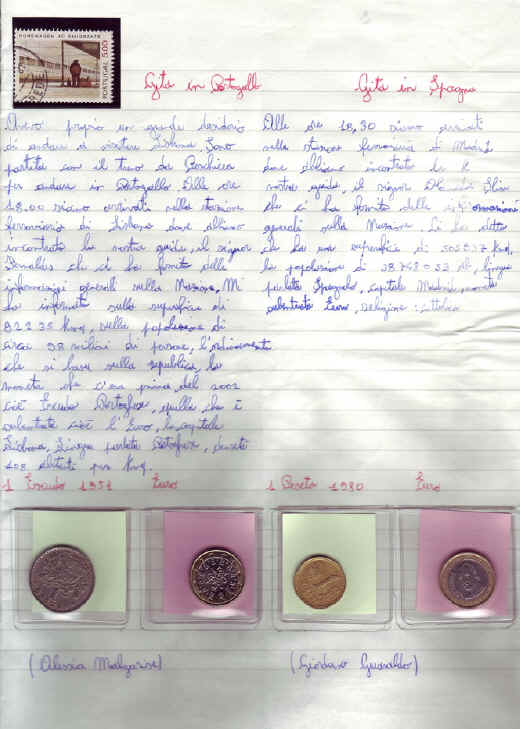 HOMENAGEM AO EMIGRANTE
5.00
PORTUGAL
Gita in Portogallo
Gita in Spagna
Avevo proprio un grande desiderio
di andare a visitare Lisbona. Sono
partita con il treno da Peschiera
per andare in Portogallo. Alle ore
18.00 siamo arrivati nella stazione
ferroviaria di Lisbona dove abbiamo
incontrato la nostra guida, il signor
che ci ha fornito delle
informazioni generali sulla Nazione. Mi
ha informato sulla superficie di
92235 Kmq, sulla popolazione di
circa milioni di persone, l'ordinamento
che si basa sulla repubblica, la
moneta che c'era prima del 2002
cioè Escudo Portoghese, quella che è
subentrata cioè l'Euro, la capitale
Lisbona, lingua parlata Portoghese, densità
108 abitanti per Kmq.
Alle ore 18,30 siamo arrivati
nella stazione ferroviaria di Madrid
dove abbiamo incontrato la
nostra guida, il signor
che ci ha fornito delle informazioni
generali sulla Nazione. Ci ha detto
che ha una superficie di Kmq,
la popolazione di ab, lingua
parlata Spagnolo, capitale Madrid, moneta
subentrata Euro, religione: cattolica
1 Escudo 1951 Euro
1 Peseta 1980 Euro
(Alessia Malgarise)
(Giordano Guaraldo)